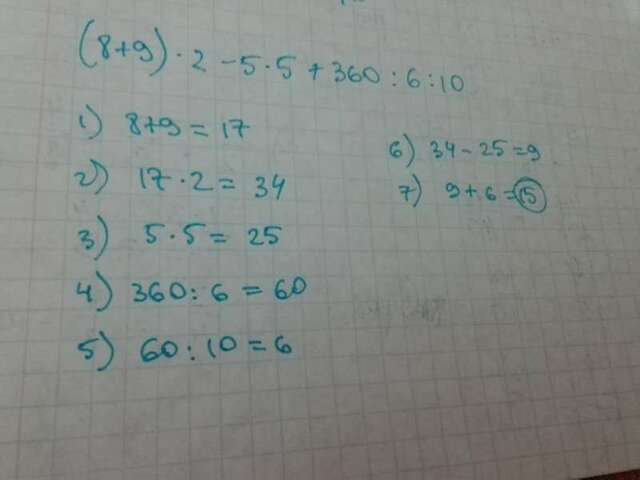 (8+9)·2-5·5+360:6:10
1) 8+9=17
2) 17·2=34
3) 5·5=25
4) 360:6=60
5) 60:10=6
6) 34-25=9
7) 9+6=15